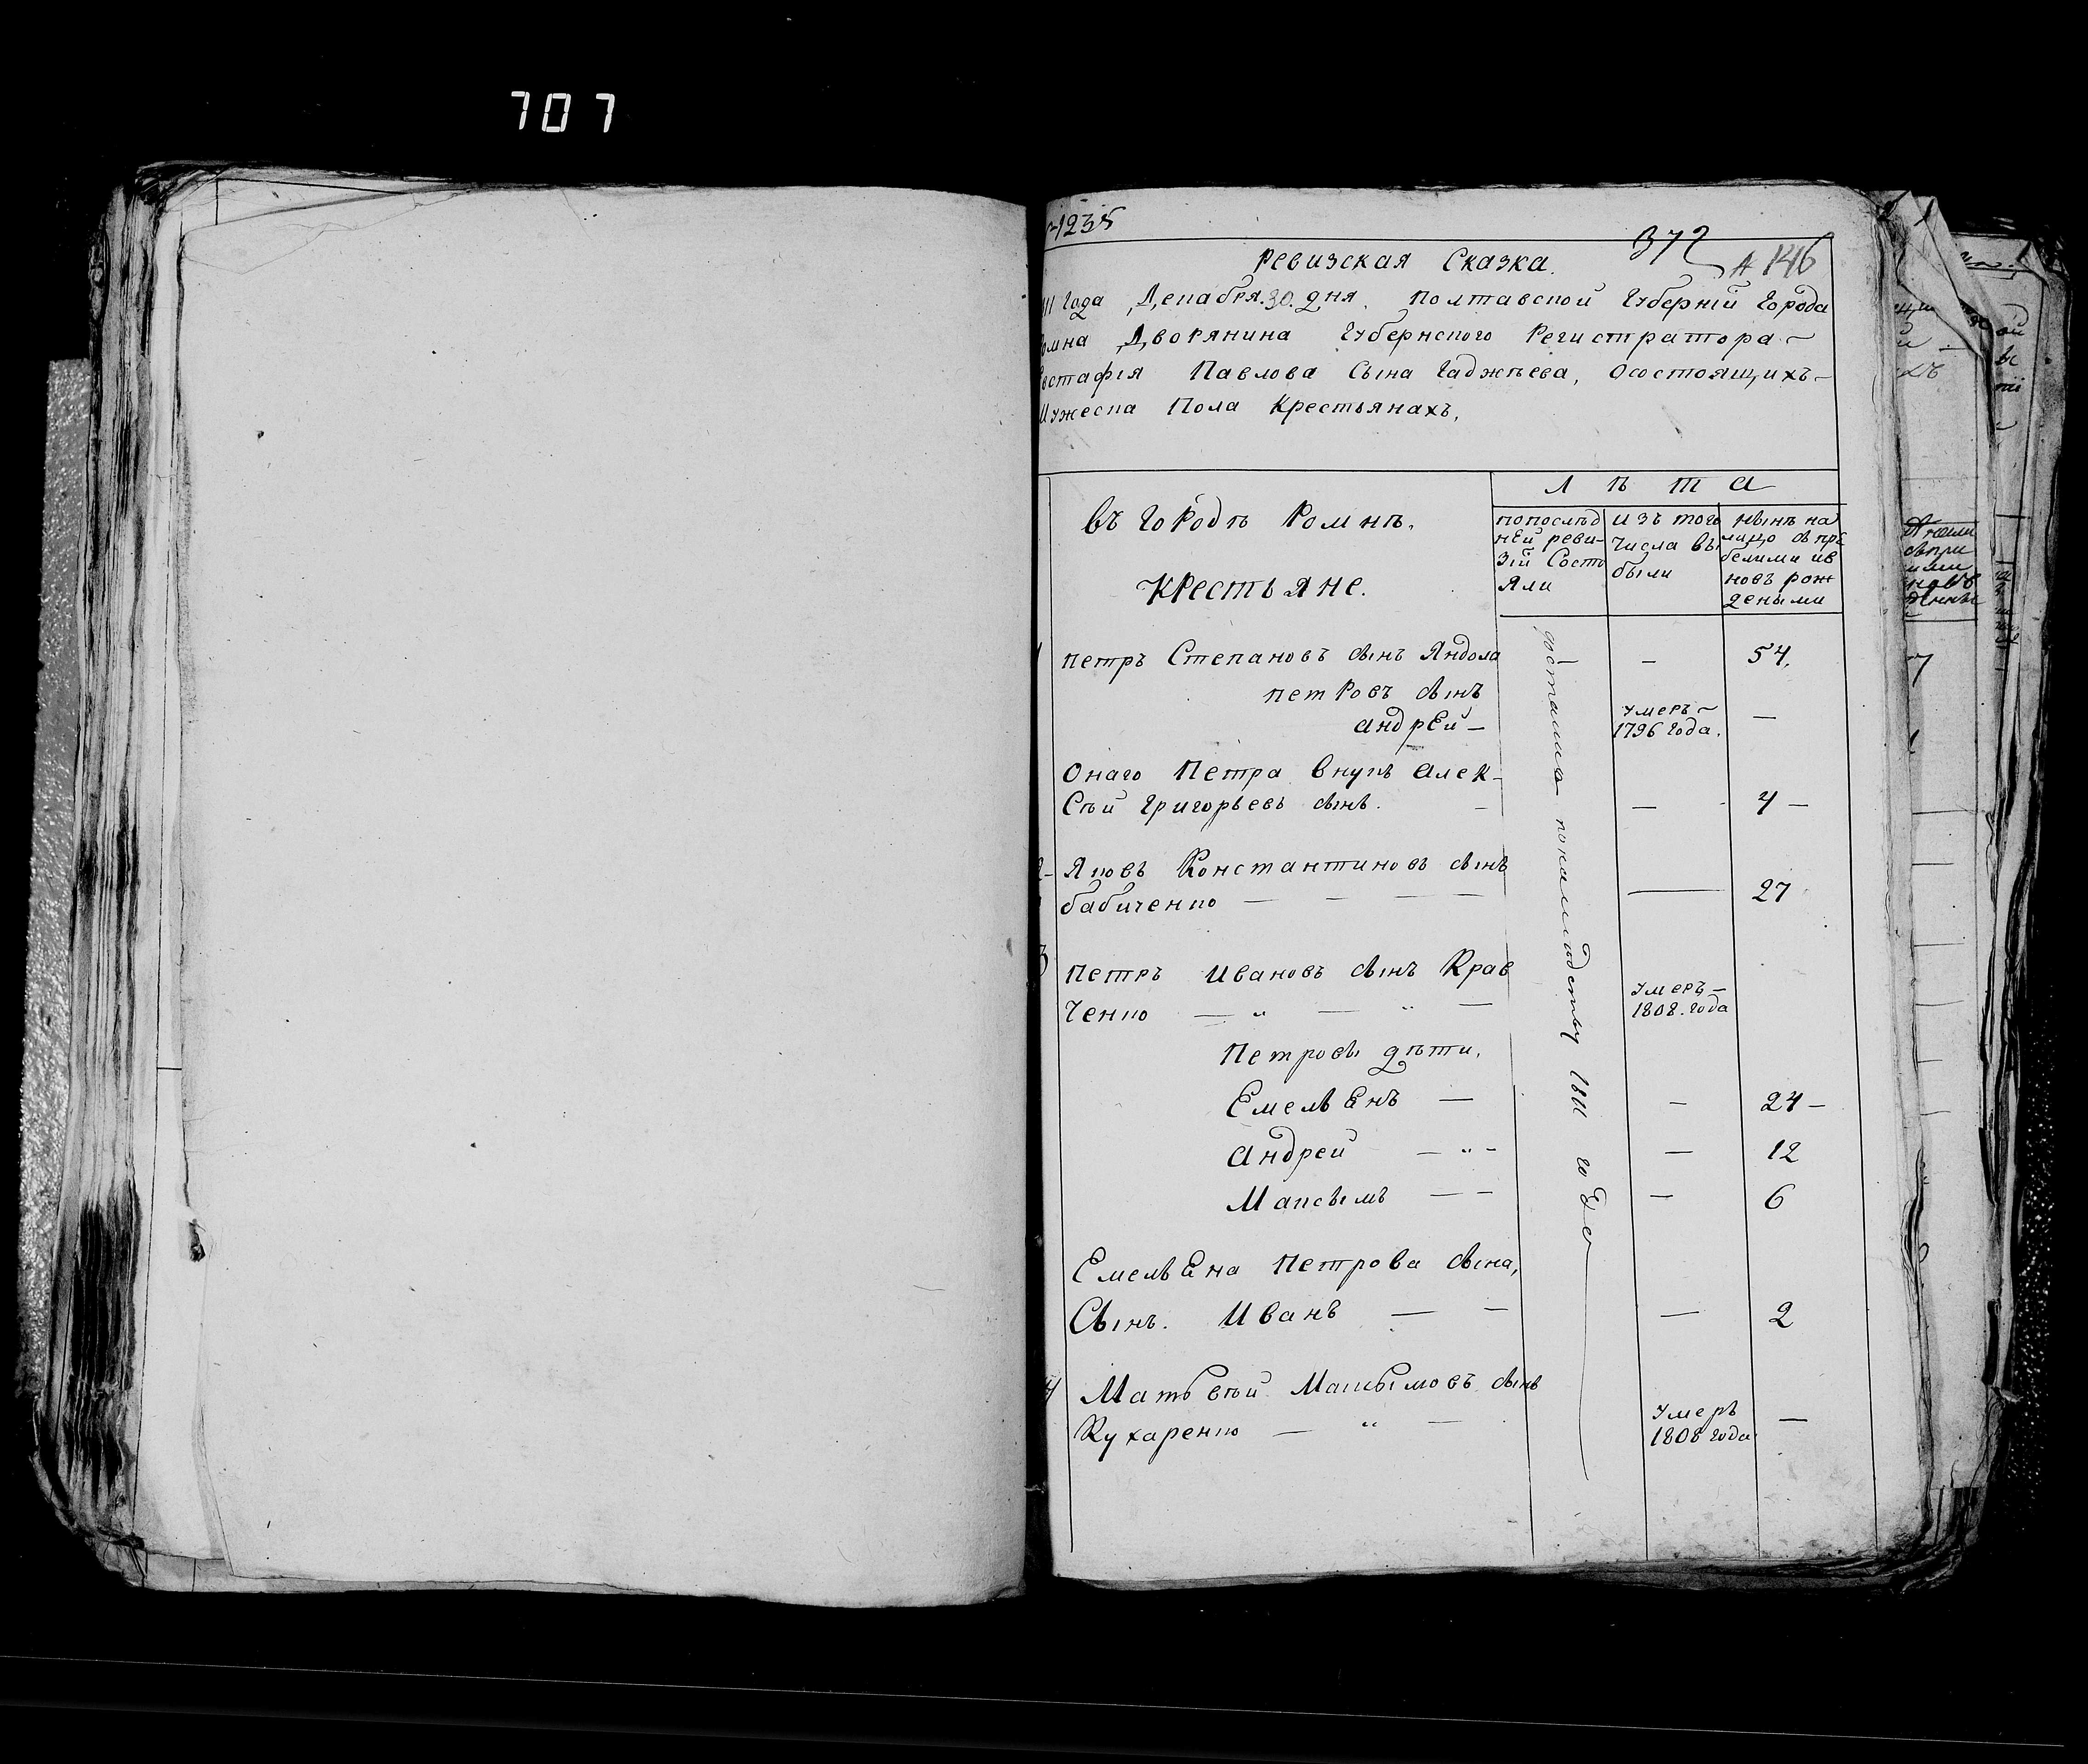 707
1235
372
146
Ревизская Сказка.
Года Декабря 30. дня. Полтавской Губернїй Города
Дворянина Губернского Регистратора
Павлова Сына Гаджѣева, осостоящихъ
Мужеска Пола Крестьянахъ,
Лѣта
въ Городѣ Ромнѣ.
Крестьяне.
попослѣд
ней реви-
зїй Состо
яли
изъ того
числа вы
были
нынѣ на
лицо съ при
былими ив
новъ рож
деными
Петръ Степановъ сынъ Яндола — 54.
Петровъ сынъ
андрей — умеръ
1796 года. —
Онаго Петра внукъ алек-
сѣй Григорьевъ сынъ. — — 4 —
Яковъ Константиновъ сынъ
бабиченко — — — — — 27
3 Петръ Ивановъ сынъ Крав
ченко — „ — „ — умеръ —
1808. года
Петровы дѣти.
Емельенъ — — 24 —
андрей — „ - — 12
Максымъ — — — 6
Емельена Петрова сына,
Сынъ. Иванъ — — — 2
4 Матьвѣй Максымовъ сынъ
Кухаренко — „ — умеръ
1808 года —
1811 года